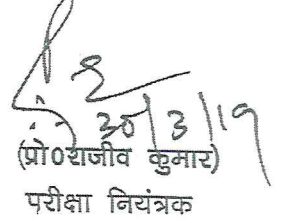 30/3/19
(प्रो0राजीव कुमार)
परीक्षा नियंत्रक